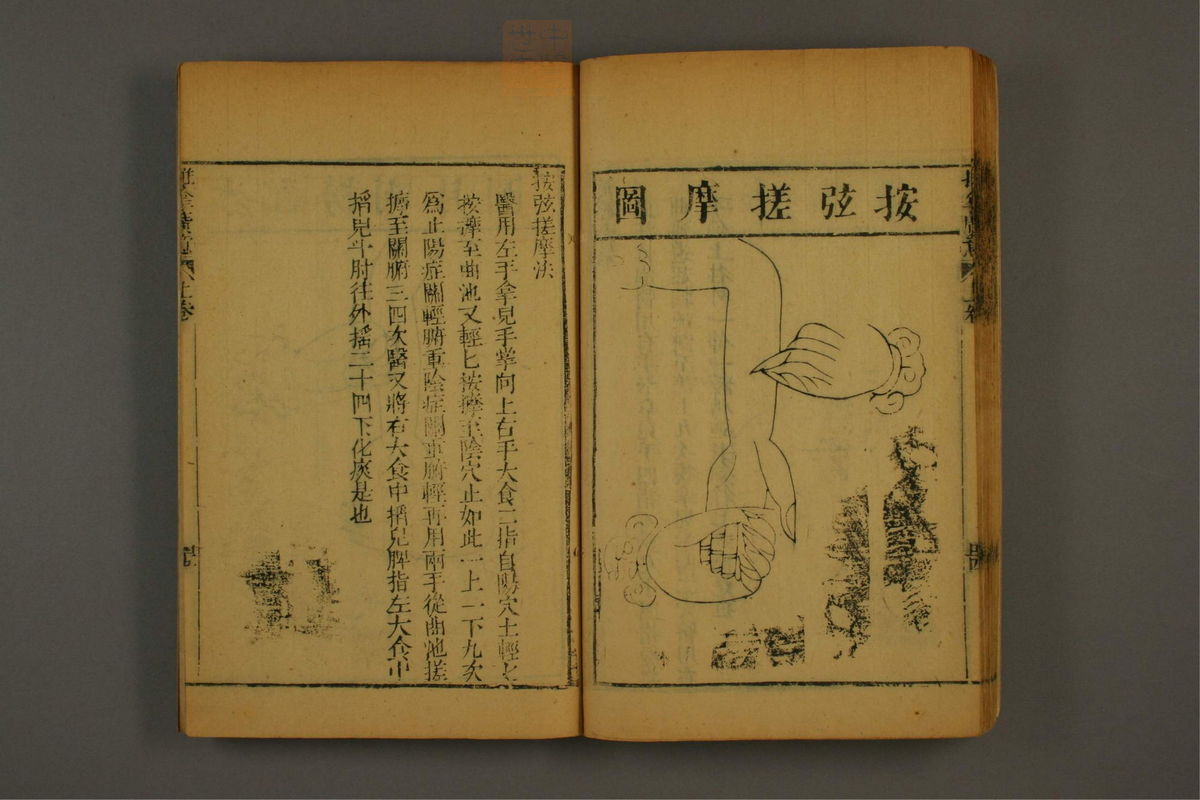 按弦搓摩圖
按弦搓摩法
醫用左手拿兒手掌向上右手大食二指自陽穴上輕匕
按摩至曲池又輕匕按摩至陰穴止如此一上一下九次
為止陽症關輕腑重陰症關重腑輕再用兩手從曲池搓
摩至關腑三四次醫又將右大食中掐兒脾指左大食中
掐兒斗肘往外搖二十四下化痰是也
推拿廣意
上卷